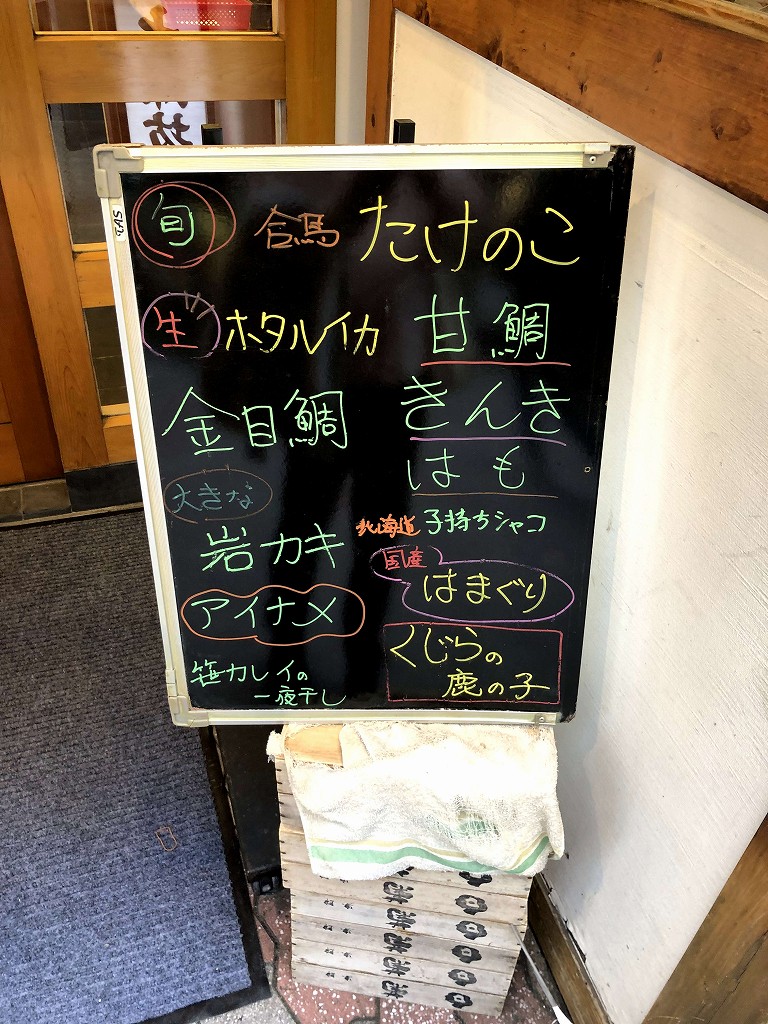 坊
旬 合馬 たけのこ
生 ホタルイカ
甘鯛
金目鯛
きんき
はも
大きな
岩カキ
北海道 子持ちシャコ
国産
はまぐり
アイナメ
くじらの
鹿の子
笹カレイの
一夜干し